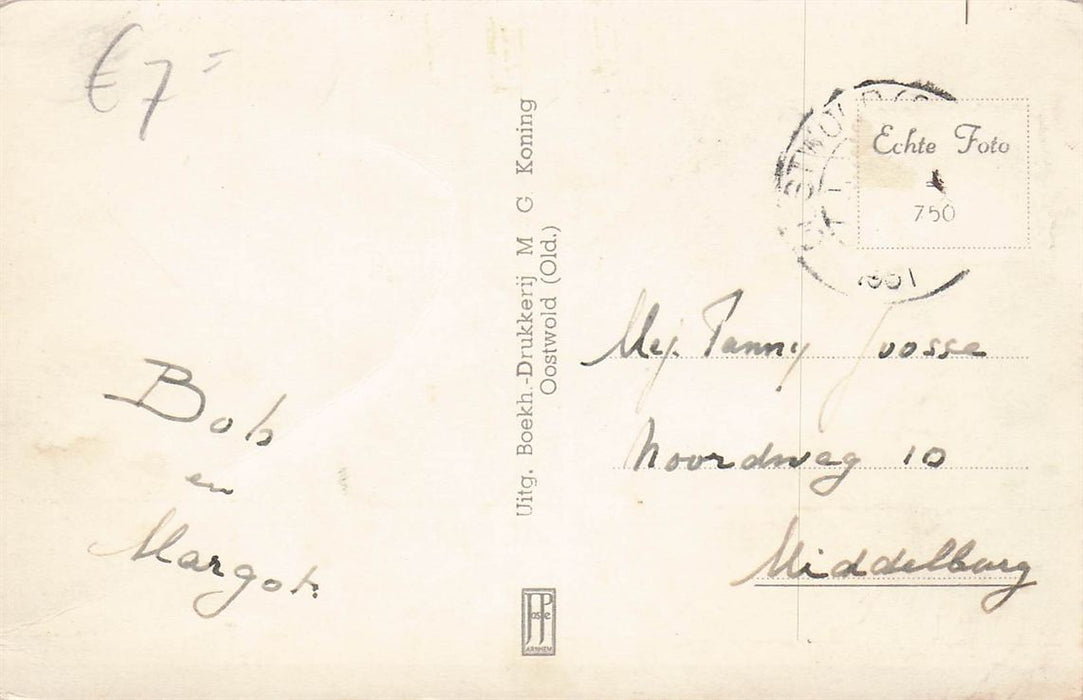 € 7=
Bob
en
Margot.
Uitg. Boekh.-Drukkerij M G Koning
Oostwold (Old.)
ARNHEM
Echte Foto
750
1951
Mej. Fanny Joosse
Noordweg 10
Middelburg